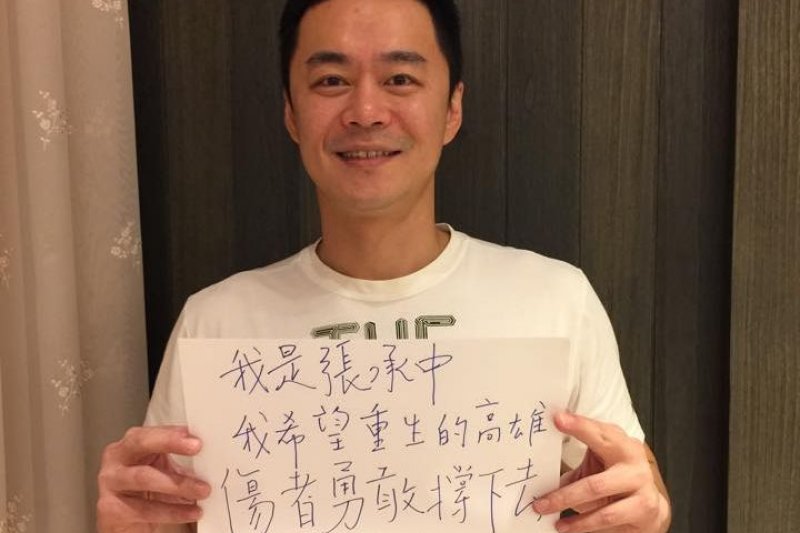 THE
我是張承中
我希望重生的高雄
傷者勇敢撐下去